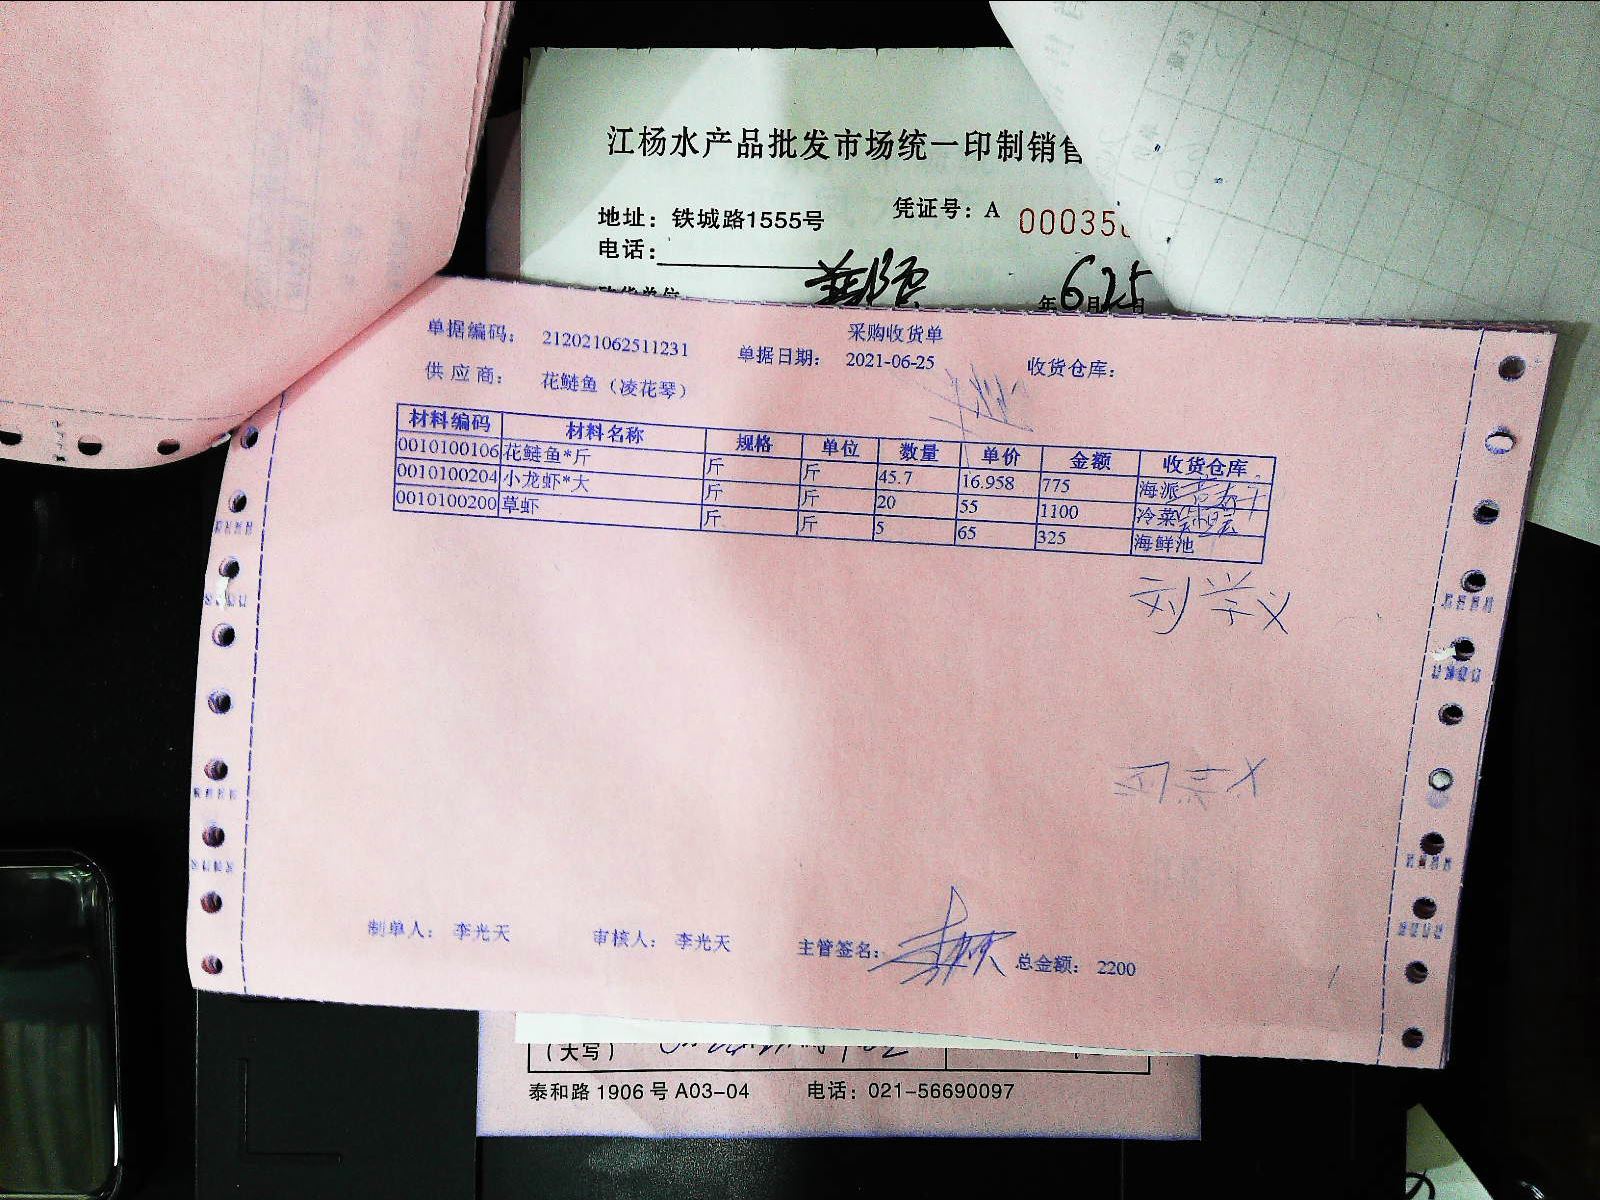 江杨水产品批发市场统一印制销售
地址：铁城路1555号
凭证号：A 00035
电话：
年6月25日
采购收货单
单据编码： 212021062511231 单据日期： 2021-06-25 收货仓库：
供应商： 花鲢鱼（凌花琴）
材料编码 材料名称 规格 单位 数量 单价 金额 收货仓库
0010100106 花鲢鱼*斤 斤 斤 45.7 16.958 775 海派
0010100204 小龙虾*大 斤 斤 20 55 1100 冷菜
0010100200 草虾 斤 斤 5 65 325 海鲜池
刘学义
制单人： 李光天 审核人： 李光天 主管签名： 总金额： 2200
（大写）
泰和路 1906 号 A03-04 电话：021-56690097